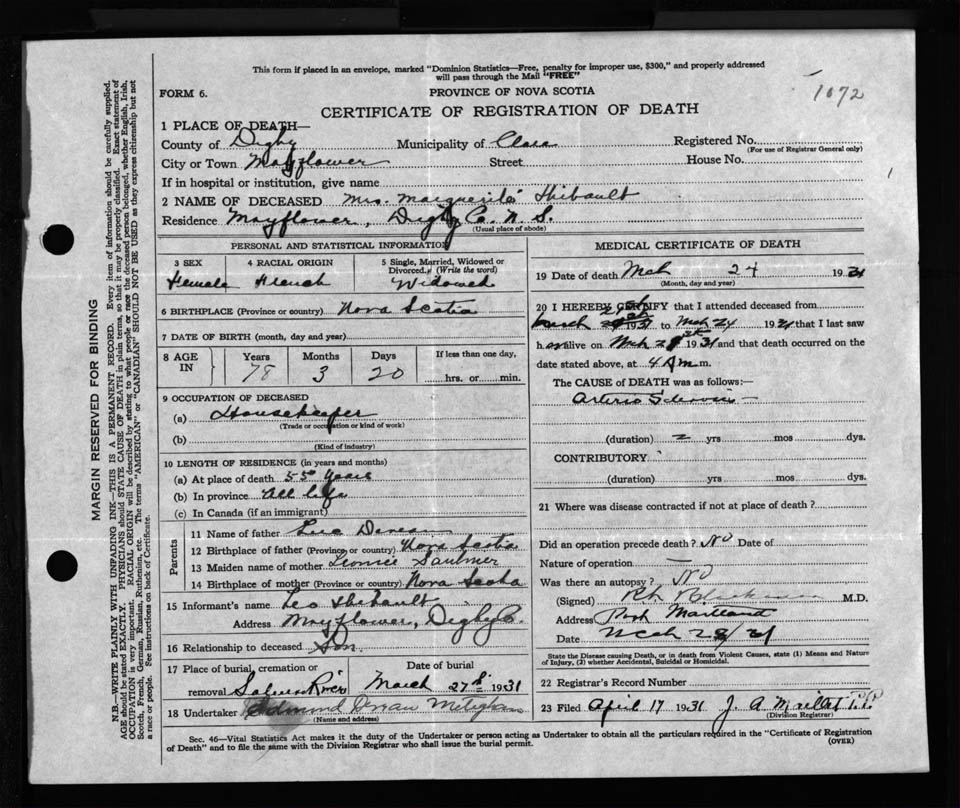 This form if placed in an envelope, marked "Dominion Statistics—Free, penalty for improper use, $300," and properly addressed
will pass through the Mail "FREE"
FORM 6.
PROVINCE OF NOVA SCOTIA
1072
CERTIFICATE OF REGISTRATION OF DEATH
1 PLACE OF DEATH—
County of Digby Municipality of Clare Registered No.
(For use of Registrar General only)
City or Town Mayflower Street House No.
If in hospital or institution, give name
2 NAME OF DECEASED Mrs. Marguerite Thibault
Residence Mayflower, Digby Co. N. S.
(Usual place of abode)
PERSONAL AND STATISTICAL INFORMATION
3 SEX 4 RACIAL ORIGIN 5 Single, Married, Widowed or
Divorced. (Write the word)
Female French Widowed
6 BIRTHPLACE (Province or country) Nova Scotia
7 DATE OF BIRTH (month, day and year)
8 AGE IN Years Months Days If less than one day,
78 3 20 hrs. or min.
9 OCCUPATION OF DECEASED
(a) Housekeeper
(Trade or occupation or kind of work)
(b)
(Kind of industry)
10 LENGTH OF RESIDENCE (in years and months)
(a) At place of death 55 years
(b) In province all life
(c) In Canada (if an immigrant)
Parents
11 Name of father
12 Birthplace of father (Province or country) Nova Scotia
13 Maiden name of mother Saulnier
14 Birthplace of mother (Province or country) Nova Scotia
15 Informant's name Leo Thibault
Address Mayflower, Digby Co.
16 Relationship to deceased Son.
17 Place of burial, cremation or Date of burial
removal Salmon River March 27th 1931
18 Undertaker Edmond
(Name and address)
MEDICAL CERTIFICATE OF DEATH
19 Date of death Mch 24 1931
(Month, day and year)
20 I HEREBY CERTIFY that I attended deceased from
March 1931 to Mch 24 1931 that I last saw
h er alive on Mch 1931 and that death occurred on the
date stated above, at 4 A m m.
The CAUSE OF DEATH was as follows:—
Arterio Sclerosis —
(duration) 2 yrs mos dys.
CONTRIBUTORY
(duration) yrs mos dys.
21 Where was disease contracted if not at place of death?
Did an operation precede death? No Date of
Nature of operation —
Was there an autopsy? No
(Signed) M.D.
Address Port Maitland
Date Mch 28/31
State the Disease causing Death, or in death from Violent Causes, state (1) Means and Nature
of Injury, (2) whether Accidental, Suicidal or Homicidal.
22 Registrar's Record Number
23 Filed April 17 1931 J. A.
(Division Registrar)
Sec. 46—Vital Statistics Act makes it the duty of the Undertaker or person acting as Undertaker to obtain all the particulars required in the "Certificate of Registration
of Death" and to file the same with the Division Registrar who shall issue the burial permit.
(OVER)
MARGIN RESERVED FOR BINDING
N.B.—WRITE PLAINLY WITH UNFADING INK—THIS IS A PERMANENT RECORD. Every item of information should be carefully supplied.
AGE should be stated EXACTLY. PHYSICIANS should STATE CAUSE OF DEATH in plain terms, so that it may be properly classified. Exact statement of
OCCUPATION is very important. RACIAL ORIGIN will be described by stating to what people or race the deceased person belonged, whether English, Irish,
Scotch, French, German, Russian, Ruthenian, etc. The terms "AMERICAN" or "CANADIAN" SHOULD NOT BE USED as they express citizenship but not
a race or people. See instructions on back of Certificate.